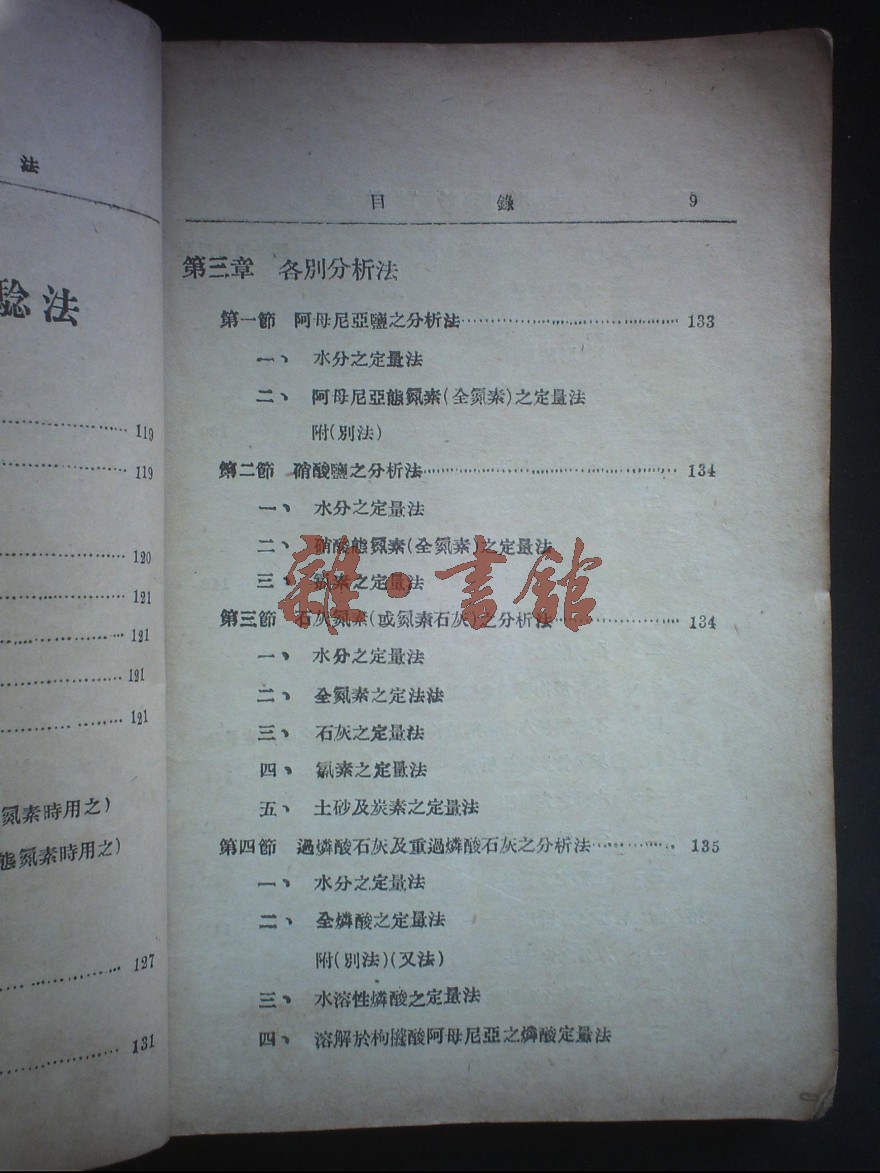 法
驗法
119
119
120
121
121
121
121
氮素時用之)
態氮素時用之)
127
131
目 錄 9
第三章 各別分析法
第一節 阿母尼亞鹽之分析法 133
一、水分之定量法
二、阿母尼亞態氮素(全氮素)之定量法
附(別法)
第二節 硝酸鹽之分析法 134
一、水分之定量法
二、硝酸態氮素(全氮素)之定量法
三、素之定量法
第三節 石灰氮素(或氮素石灰)之分析法 134
一、水分之定量法
二、全氮素之定法法
三、石灰之定量法
四、氰素之定量法
五、土砂及炭素之定量法
第四節 過燐酸石灰及重過燐酸石灰之分析法 135
一、水分之定量法
二、全燐酸之定量法
附(別法)(又法)
三、水溶性燐酸之定量法
四、溶解於枸櫞酸阿母尼亞之燐酸定量法
雜·書館